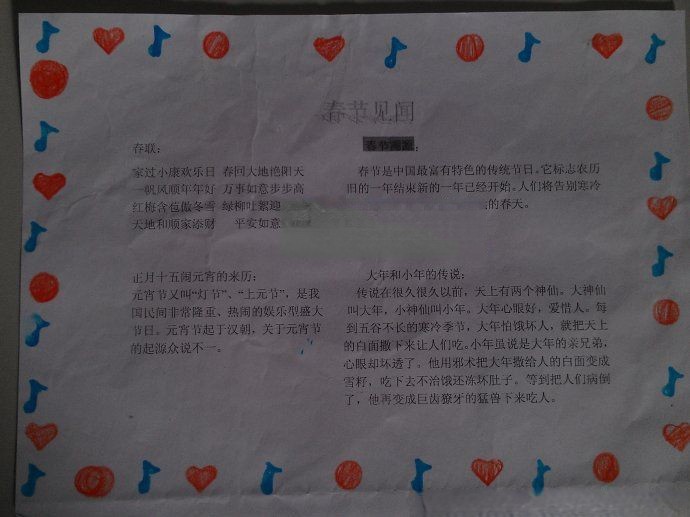 春节见闻
春联：
家过小康欢乐日 春回大地艳阳天
一帆风顺年年好 万事如意步步高
红梅含苞傲冬雪 绿柳吐絮迎
天地和顺家添财 平安如意
春节
春节是中国最富有特色的传统节日。它标志农历
旧的一年结束新的一年已经开始。人们将告别寒冷
的春天。
正月十五闹元宵的来历：
元宵节又叫“灯节”、“上元节”，是我
国民间非常隆重、热闹的娱乐型盛大
节日。元宵节起于汉朝，关于元宵节
的起源众说不一。
大年和小年的传说：
传说在很久很久以前，天上有两个神仙。大神仙
叫大年，小神仙叫小年。大年心眼好，爱惜人。每
到五谷不长的寒冷季节，大年怕饿坏人，就把天上
的白面撒下来让人们吃。小年虽说是大年的亲兄弟，
心眼却坏透了。他用邪术把大年撒给人的白面变成
雪籽，吃下去不治饿还冻坏肚子。等到把人们病倒
了，他再变成巨齿獠牙的猛兽下来吃人。